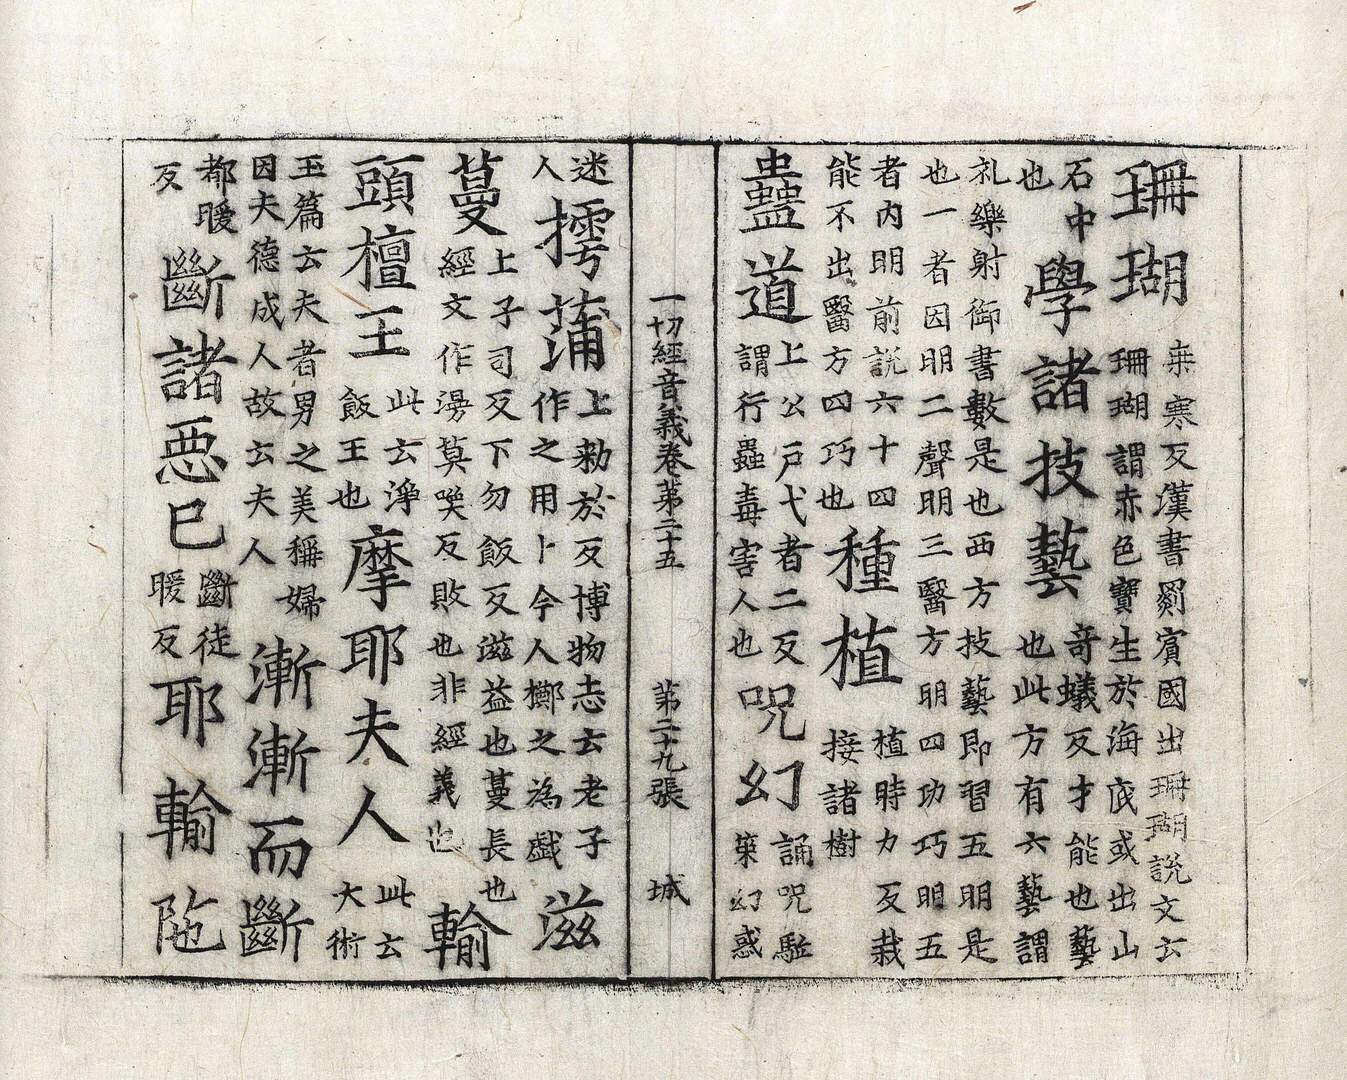 珊瑚桒寒反漢書罽賓國出珊瑚說文云珊瑚謂赤色寶生於海底或出山
石中也學諸技藝奇蟻反才能也藝也此方有六藝謂
礼樂射御書數是也西方技藝即習五明是也一者因明二聲明三醫方明四功巧明五
者內明前說六十四能不出醫方四巧也種植植時力反栽接諸樹
蠱道上公戶弋者二反謂行蠱毒害人也呪幻誦呪駈策幻惑
一切經音義卷第二十五 第二十九張 城
迷人摴蒲上勑於反博物志云老子作之用卜今人擲之為戲滋
蔓上子司反下勿飯反滋益也蔓長也經文作漫莫喚反敗也非經義也輸
頭檀王此云淨飯王也摩耶夫人此云大術
玉篇云夫者男之美稱婦因夫德成人故云夫人漸漸而斷
都暖反斷諸惡已斷徒暖反耶輸陁